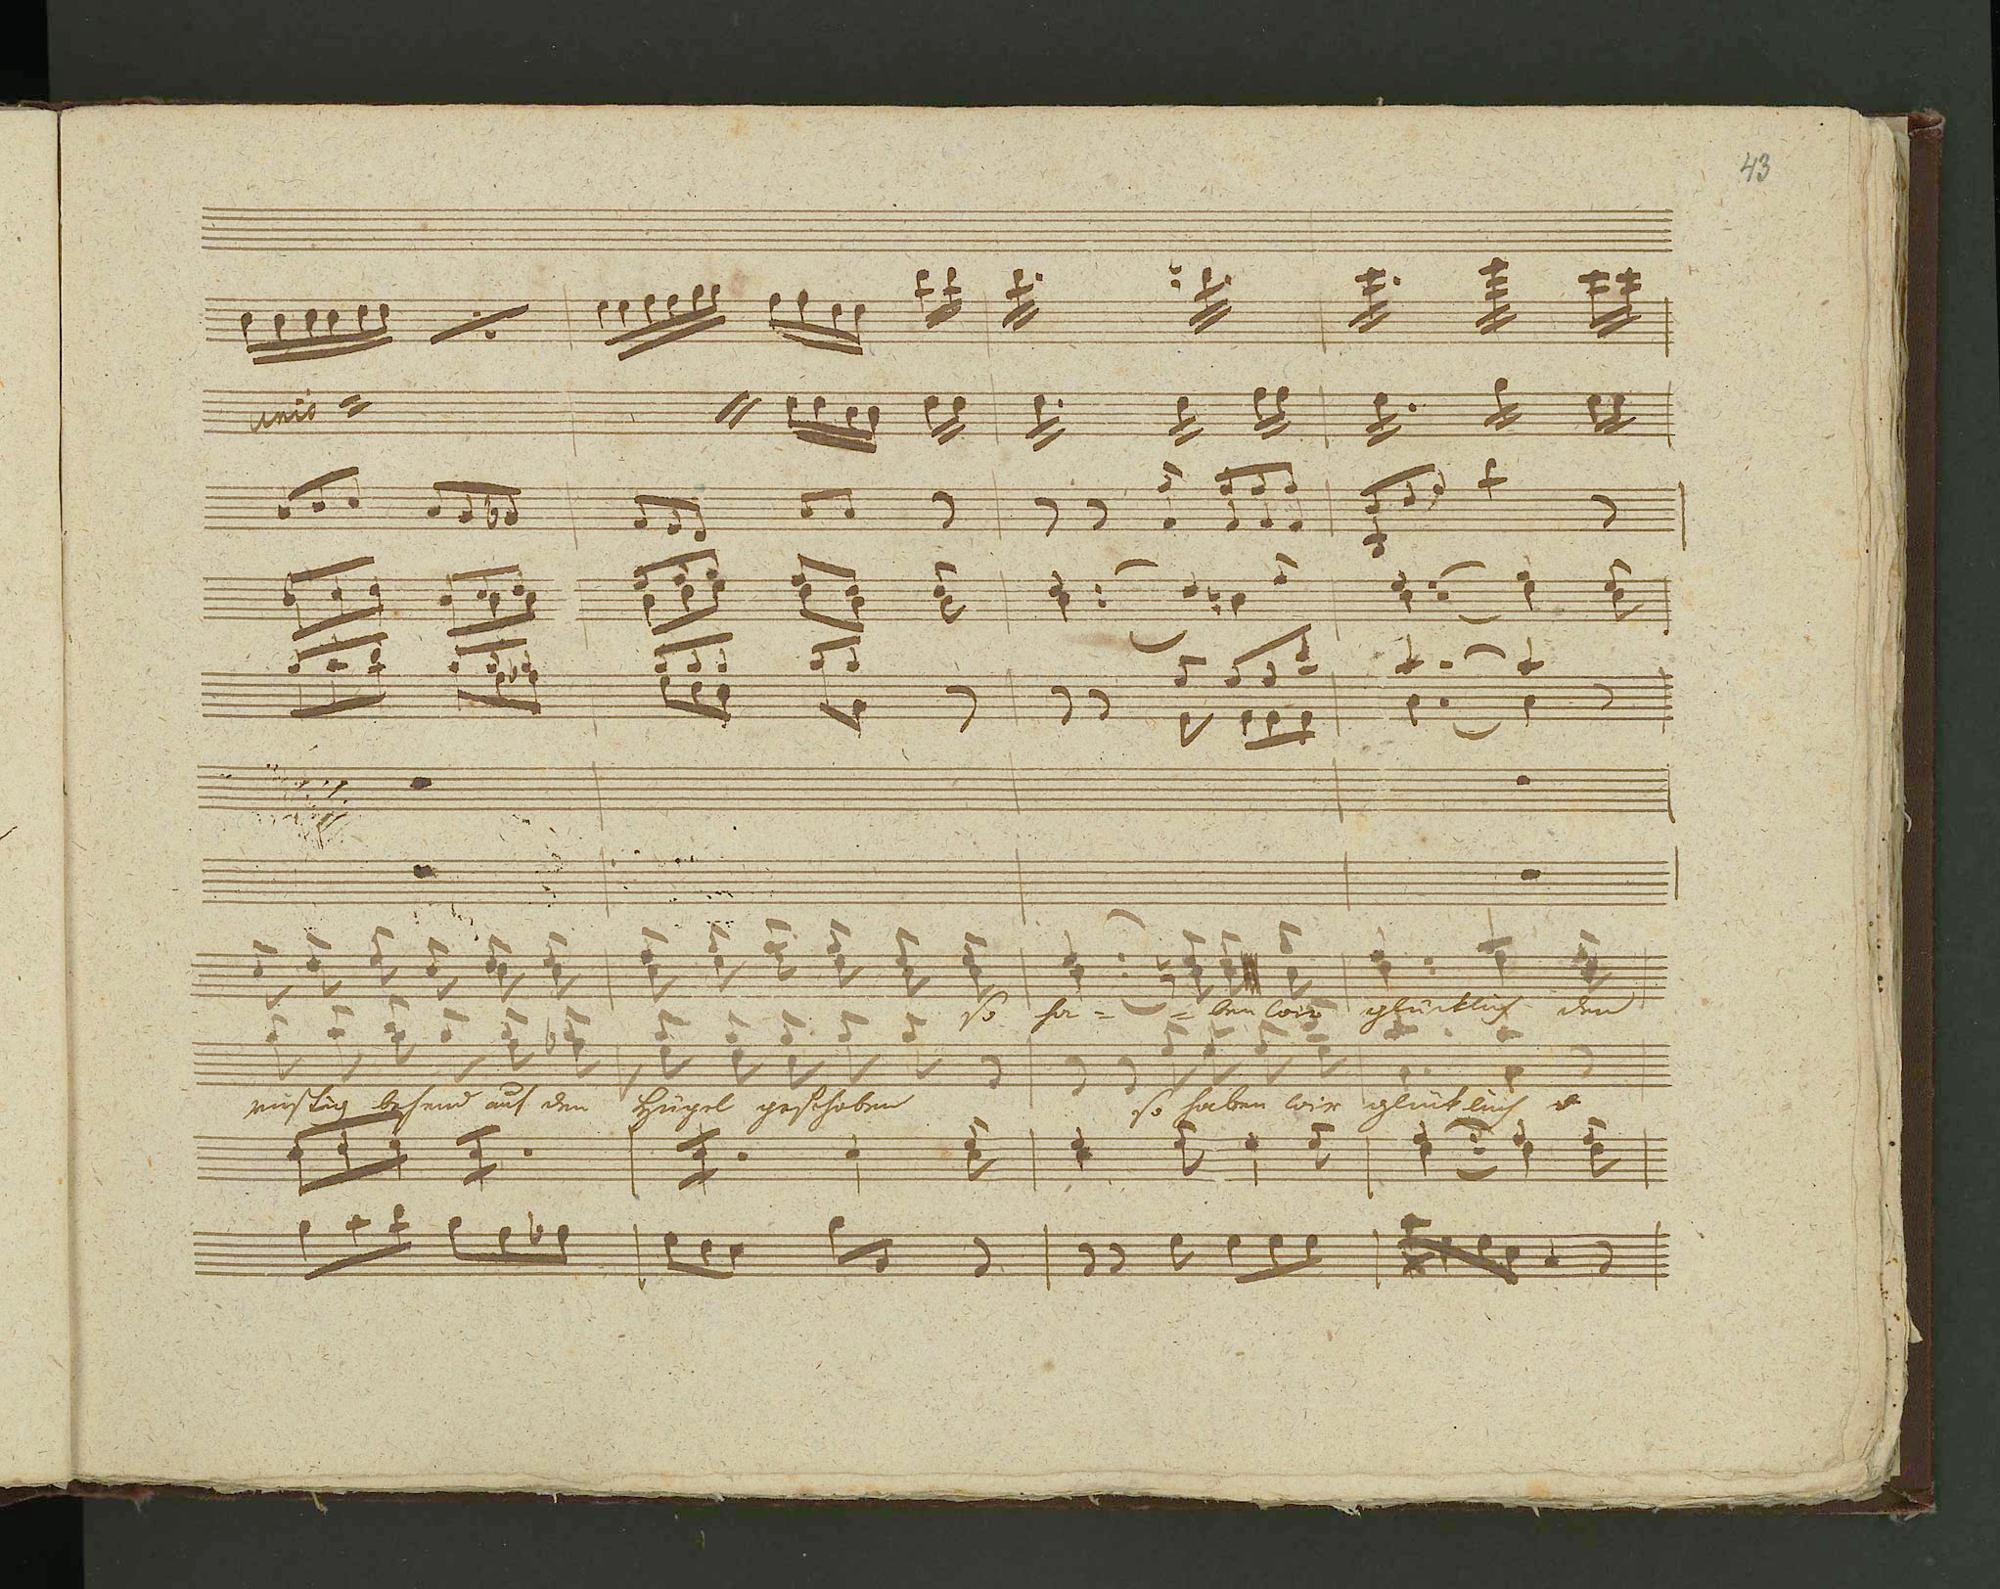 43
unis
so ha = = ben wir glücklich den
rüstig behend auf den Hügel geschoben so haben wir glücklich